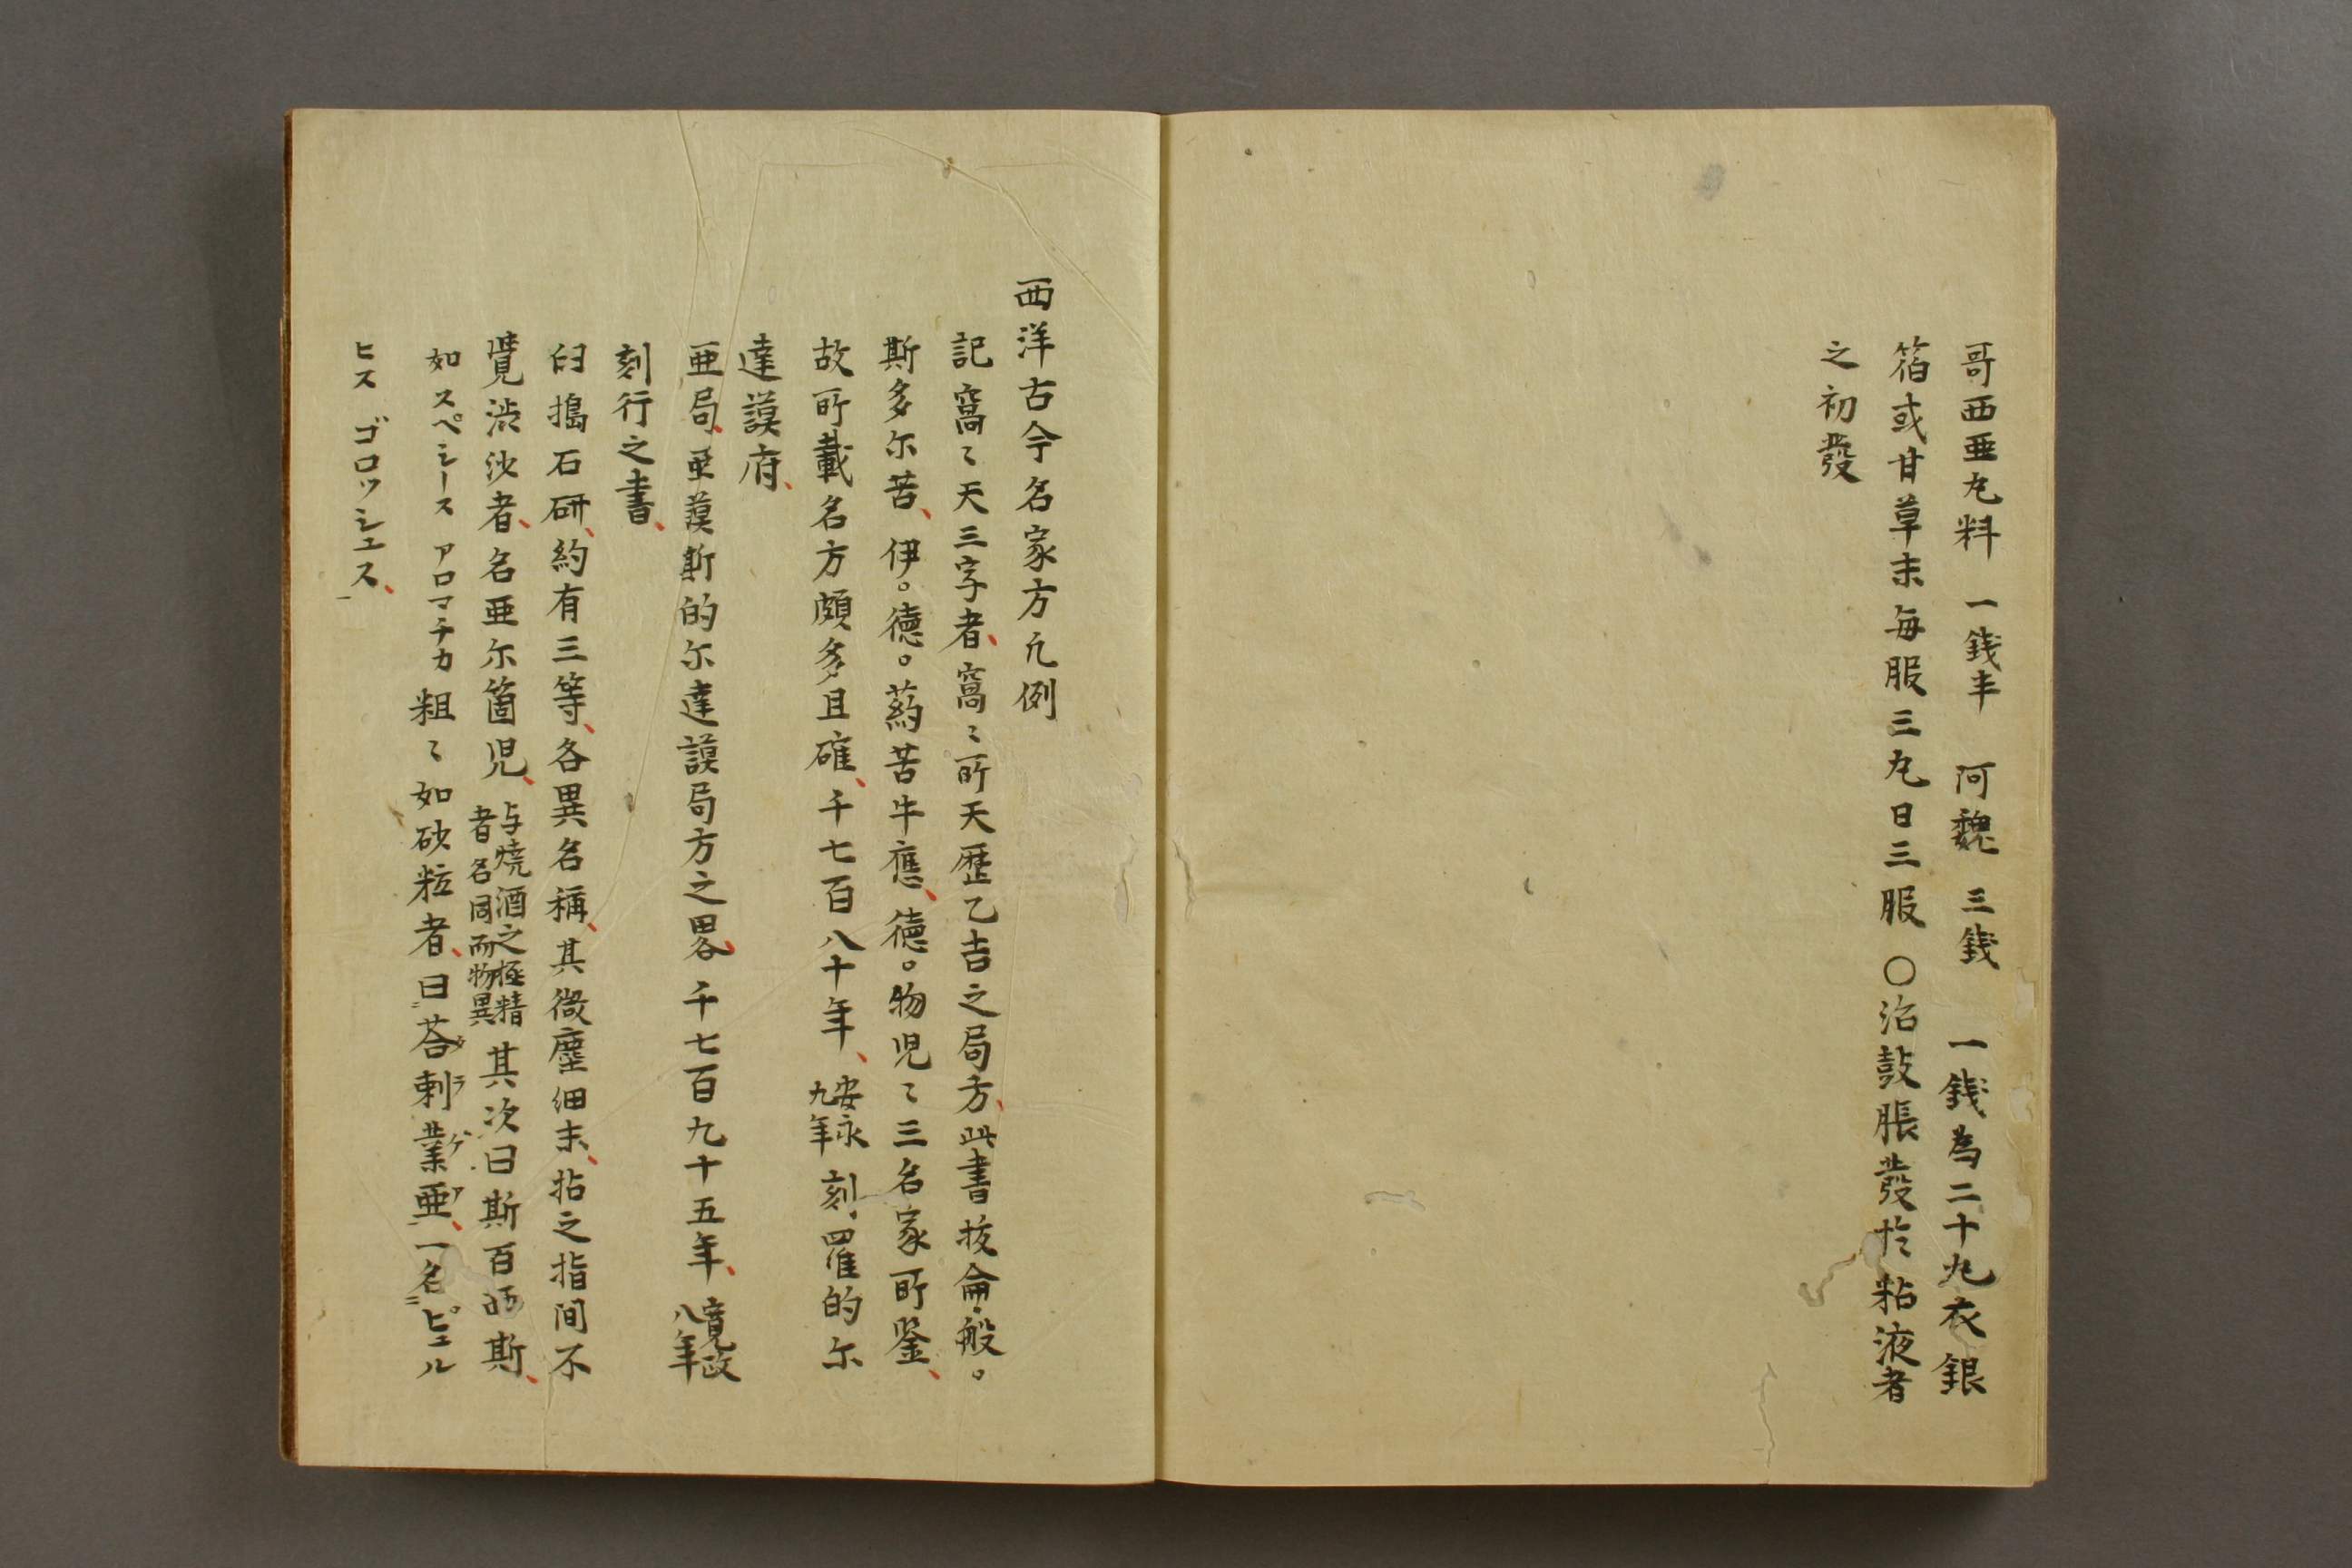 哥西亜丸料 一銭半 阿魏 三銭 一銭為二十丸衣銀
箔或甘草末毎服三丸日三服 〇治鼓脹發於粘液者
之初發
西洋古今名家方凡例
記窩〻天三字者、窩〻所天歴乙吉之局方、此書抜侖。般。
斯多尓苦、伊。徳。葯苦牛應、徳。物児〻三名家所鑒、
故所載名方頗多且確、千七百八十年、安永九年刻、羅的尓
達謨府、
亜局、亜謨斯的尓達謨局方之畧、千七百九十五年、寛政八年
刻行之書、
臼搗石研、約有三等、各異名稱、其微塵細末、拈之指间不
覺渋沙者、名亜尓箇児、与焼酒之極精者名同而物異 其次曰斯百西斯、
如スペシース アロマチカ 粗〻如砂粒者、曰荅剌業亜、一名ピュル
ヒス ゴロッシュス、